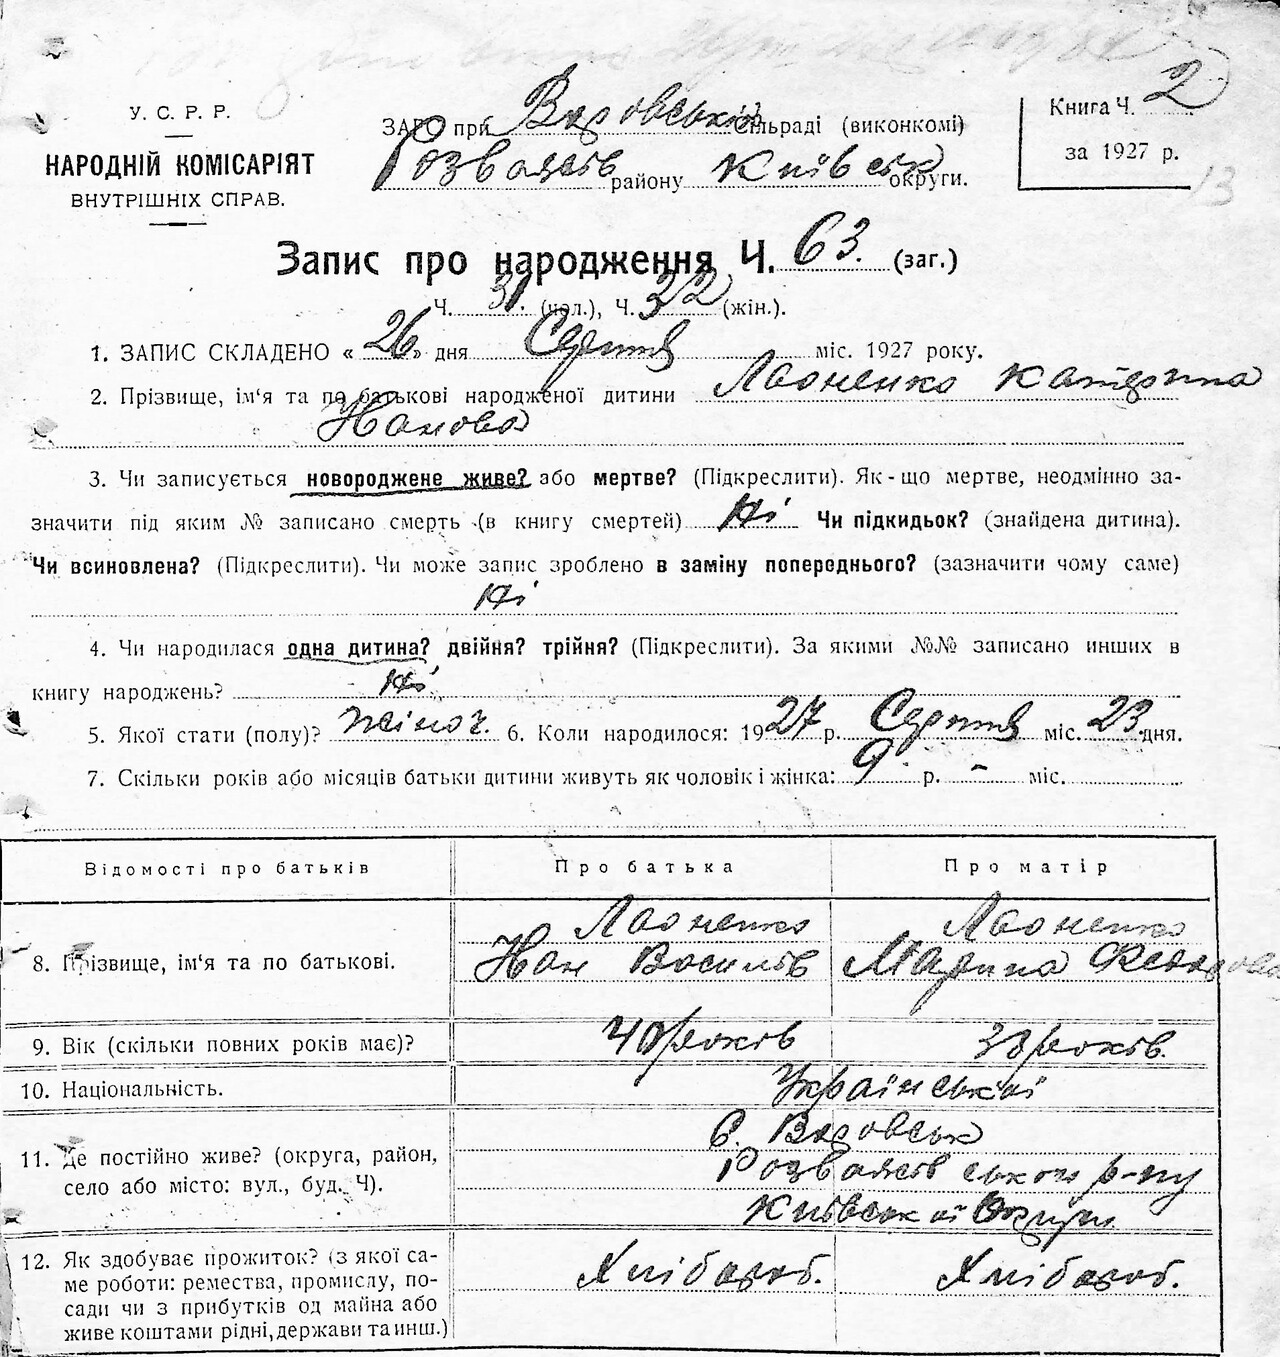 У. С. Р. Р.
НАРОДНІЙ КОМІСАРІЯТ
ВНУТРІШНІХ СПРАВ.
ЗАГС при Варовській Сільраді (виконкомі)
Розважів району Київськ округи.
Книга Ч. 2
за 1927 р.
13
Запис про народження Ч. 63. (заг.)
Ч. 31. (чол.), Ч. 32 (жін.).
1. ЗАПИС СКЛАДЕНО « 26 » дня Серпня міс. 1927 року.
2. Прізвище, ім'я та по батькові народженої дитини Лаоненко Катерина
Йванова
3. Чи записується новороджене живе? або мертве? (Підкреслити). Як-що мертве, неодмінно за-
значити під яким № записано смерть (в книгу смертей) Ні Чи підкидьок? (знайдена дитина).
Чи всиновлена? (Підкреслити). Чи може запис зроблено в заміну попереднього? (зазначити чому саме)
Ні
4. Чи народилася одна дитина? двійня? трійня? (Підкреслити). За якими №№ записано инших в
книгу народжень? - Ні
5. Якої стати (полу)? жіноч. 6. Коли народилося: 1927 р. Серпня міс. 23 дня.
7. Скільки років або місяців батьки дитини живуть як чоловік і жінка: 9 р. - міс.
Відомості про батьків Про батька Про матір
Лаоненко Лаоненко
8. Прізвище, ім'я та по батькові. Йван Василів Марина
9. Вік (скільки повних років має)? 40 років 38 років.
10. Національність. Українській
С. Варовськ
11. Де постійно живе? (округа, район,
село або місто: вул., буд. Ч). Розважівського р-ну
Київської Округи
12. Як здобуває прожиток? (з якої са-
ме роботи: ремества, промислу, по-
сади чи з прибутків од майна або
живе коштами рідні, держави та инш.) Хлібороб. Хлібороб.